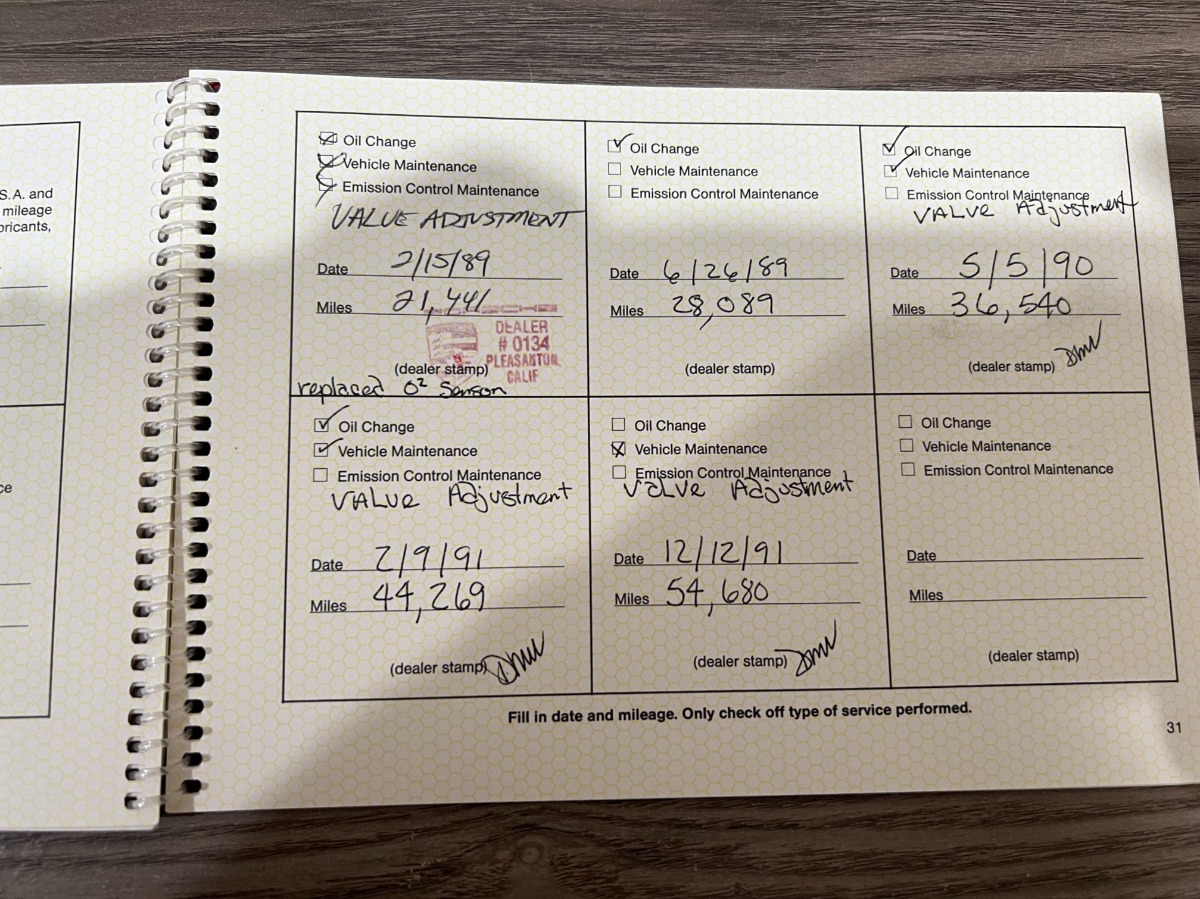 S.A. and
mileage
bricants,
ce
Oil Change
Vehicle Maintenance
Emission Control Maintenance
VALVE ADJUSTMENT
Date 2/15/89
Miles 21,441
DEALER
# 0134
PLEASANTON,
CALIF
(dealer stamp)
replaced O² Sensor
Oil Change
Vehicle Maintenance
Emission Control Maintenance
Date 6/26/89
Miles 28,089
(dealer stamp)
Oil Change
Vehicle Maintenance
Emission Control Maintenance
VALVE Adjustment
Date 5/5/90
Miles 36,540
(dealer stamp)
Oil Change
Vehicle Maintenance
Emission Control Maintenance
VALVE Adjustment
Date 2/9/91
Miles 44,269
(dealer stamp)
Oil Change
Vehicle Maintenance
Emission Control Maintenance
VALVE Adjustment
Date 12/12/91
Miles 54,680
(dealer stamp)
Oil Change
Vehicle Maintenance
Emission Control Maintenance
Date
Miles
(dealer stamp)
Fill in date and mileage. Only check off type of service performed.
31